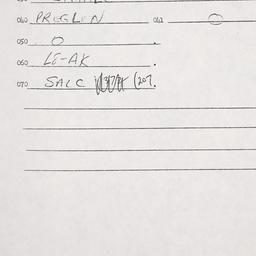 040 PREGLEN 041 0
050 0
060 LE-AK
070 SALC (207.